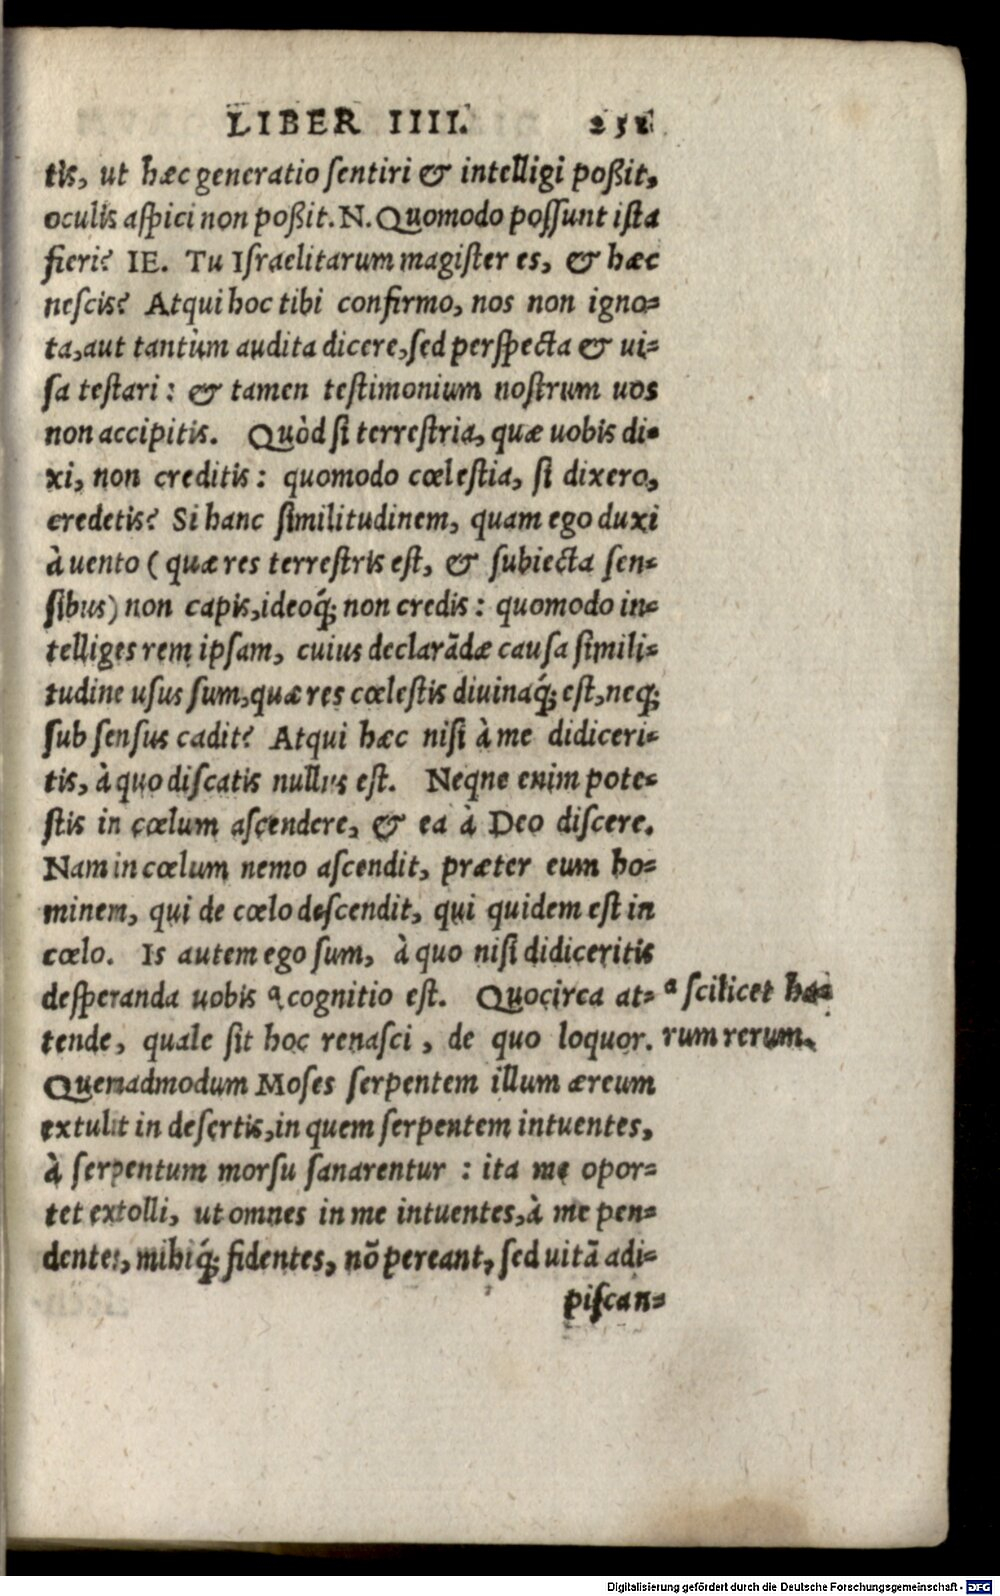 LIBER IIII. 251
tis, ut hæc generatio sentiri & intelligi poßit,
oculis aspici non poßit. N. Quomodo possunt ista
fieri? IE. Tu Israelitarum magister es, & hæc
nescis? Atqui hoc tibi confirmo, nos non igno-
ta, aut tantùm audita dicere, sed perspecta & ui-
sa testari: & tamen testimonium nostrum uos
non accipitis. Quòd si terrestria, quæ uobis di-
xi, non creditis: quomodo cœlestia, si dixero,
credetis? Si hanc similitudinem, quam ego duxi
à uento (quæ res terrestris est, & subiecta sen-
sibus) non capis, ideoq́; non credis: quomodo in-
telliges rem ipsam, cuius declarãdæ causa simili-
tudine usus sum, quæ res cœlestis diuinaq́; est, neq;
sub sensus cadit? Atqui hæc nisi à me didiceri-
tis, à quo discatis nullus est. Neqne enim pote-
stis in cœlum ascendere, & ea à Deo discere.
Nam in cœlum nemo ascendit, præter eum ho-
minem, qui de cœlo descendit, qui quidem est in
cœlo. Is autem ego sum, à quo nisi didiceritis
desperanda uobis ᵃ cognitio est. Quocirca at-
tende, quale sit hoc renasci, de quo loquor.
ᵃ scilicet ha-
rum rerum.
Quemadmodum Moses serpentem illum æreum
extulit in desertis, in quem serpentem intuentes,
à serpentum morsu sanarentur: ita me opor-
tet extolli, ut omnes in me intuentes, à me pen-
dentes, mihiq́; fidentes, nõ pereant, sed uitã adi-
piscan-
Digitalisierung gefördert durch die Deutsche Forschungsgemeinschaft - DFG